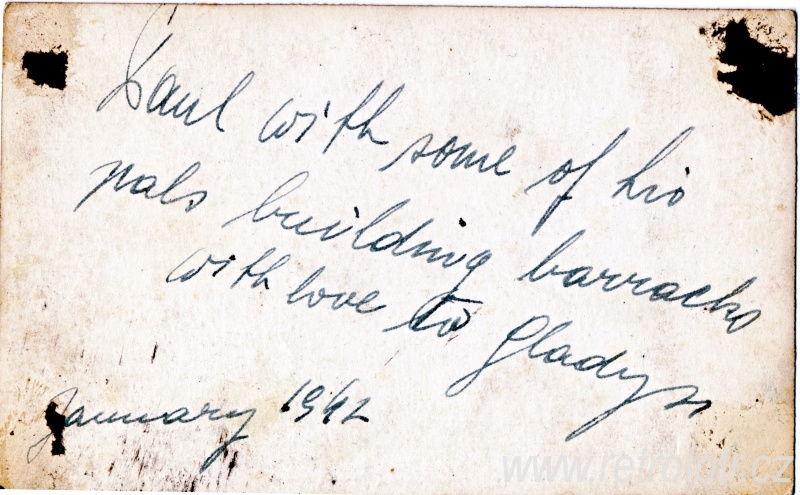 Paul with some of his
pals building barracks
with love to Gladys
January 1942
www.retrofoti.cz